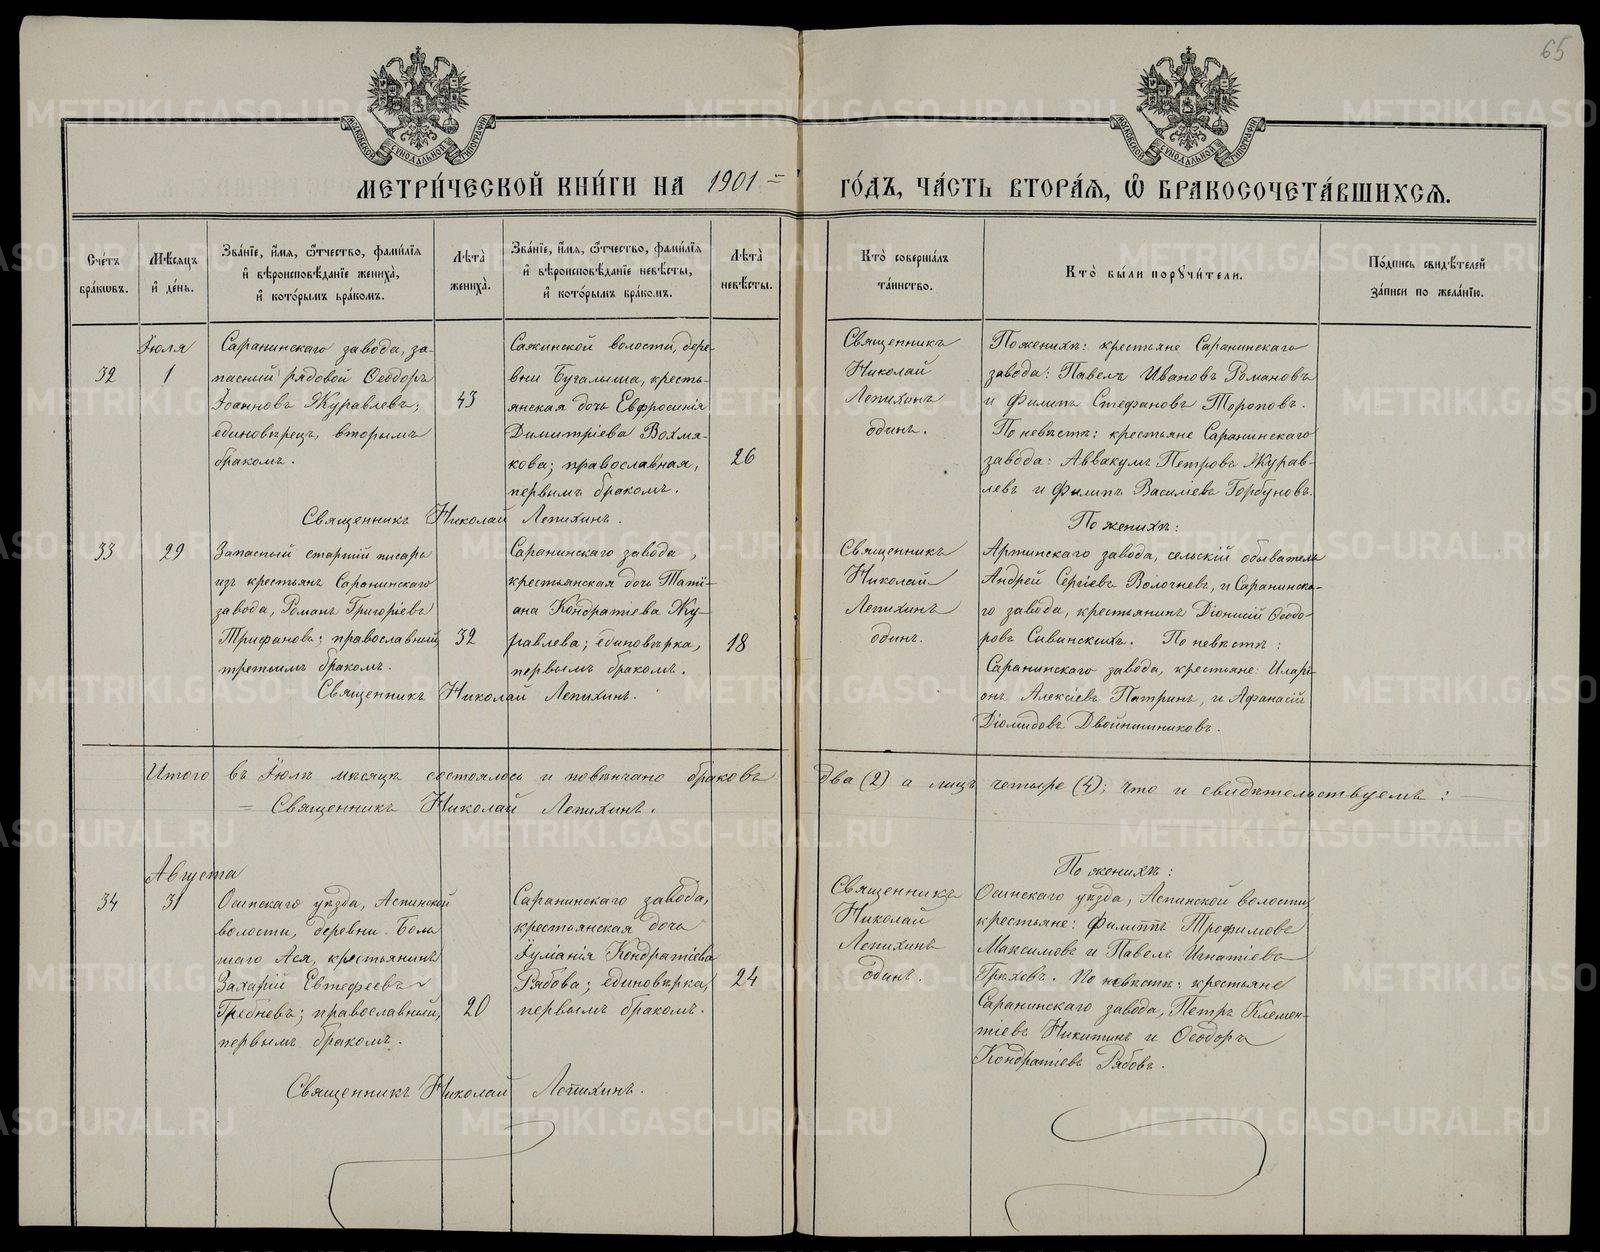 65
МОСКОВСКОЙ СѴНОДАЛЬНОЙ ТИПОГРАФІИ
МОСКОВСКОЙ СѴНОДАЛЬНОЙ ТИПОГРАФІИ
МЕТРИ́ЧЕСКОЙ КНИ́ГИ НА 1901 = ГО́ДЪ, ЧА́СТЬ ВТОРА́Я, Ѽ БРАКОСОЧЕТА́ВШИХСЯ.
Сче́тъ бра́кωвъ.
Мѣ́сяцъ и҆ де́нь.
Зва́нїе, и҆́мя, ѻ҆́тчество, фами́лїя и҆ вѣроисповѣ́данїе жениха̀, и҆ кото́рымъ бра́комъ.
Лѣ́та̀ жениха̀.
Зва́нїе, и҆́мя, ѻ҆́тчество, фами́лїя и҆ вѣроисповѣ́данїе невѣ́сты, и҆ кото́рымъ бра́комъ.
Лѣ́та̀ невѣ́сты.
Кто̀ соверша́лъ та́инство.
Кто̀ бы́ли порꙋчи́тели.
По́дпись свидѣ́телей за́писи по жела́нїю.
Іюля
32
1
Саранинскаго завода, за-
пасный рядовой Ѳеодоръ
Іоанновъ Журавлевъ;
единовѣрецъ, вторымъ
бракомъ.
43
Сажинской волости, дере-
вни Бугалыша, кресть-
янская дочь Евфросинія
Димитріева Вохмя-
кова; православная,
первымъ бракомъ.
26
Священникъ
Николай
Лепихинъ
одинъ.
По женихѣ: крестьяне Саранинскаго
завода: Павелъ Ивановъ Романовъ
и Филипъ Стефановъ Тороповъ.
По невѣстѣ: крестьяне Саранинскаго
завода: Аввакумъ Петровъ Журав-
левъ и Филипъ Василіевъ Горбуновъ.
Священникъ Николай Лепихинъ.
33
29
Запасный старшій писарь
изъ крестьянъ Саранинскаго
завода, Романъ Григоріевъ
Трифановъ; православный,
третьимъ бракомъ.
32
Саранинскаго завода,
крестьянская дочь Таті-
ана Кондратіева Жу-
равлева; единовѣрка,
первымъ бракомъ.
18
Священникъ
Николай
Лепихинъ
одинъ.
По женихѣ:
Артинскаго завода, сельскій обыватель
Андрей Сергіевъ Волочневъ, и Саранинска-
го завода, крестьянинъ Діонисій Ѳеодо-
ровъ Сивинскихъ. По невѣстѣ:
Саранинскаго завода, крестьяне: Иларі-
онъ Алексіевъ Патринъ, и Афанасій
Діомидовъ Двойнишниковъ.
Священникъ Николай Лепихинъ.
Итого въ Іюлѣ мѣсяцѣ состоялось и повѣнчано браковъ два (2) а лицъ четыре (4); что и свидѣтельствуемъ:
= Священникъ Николай Лепихинъ.
Августа
34
31
Осинскаго уѣзда, Аспинской
волости, деревни Боль
шаго Ася, крестьянинъ
Захарій Евтефеевъ
Гребневъ; православный,
первымъ бракомъ.
20
Саранинскаго завода,
крестьянская дочь
Іуліанія Кондратіева
Рябова; единовѣрка,
первымъ бракомъ.
24
Священникъ
Николай
Лепихинъ
одинъ.
По женихѣ:
Осинскаго уѣзда, Аспинской волости
крестьяне: Филиппъ Трофимовъ
Максимовъ и Павелъ Игнатіевъ
Грѣховъ. По невѣстѣ: крестьяне
Саранинскаго завода, Петръ Клемен-
тіевъ Никитинъ и Ѳеодоръ
Кондратіевъ Рябовъ.
Священникъ Николай Лепихинъ.
METRIKI.GASO-URAL.RU